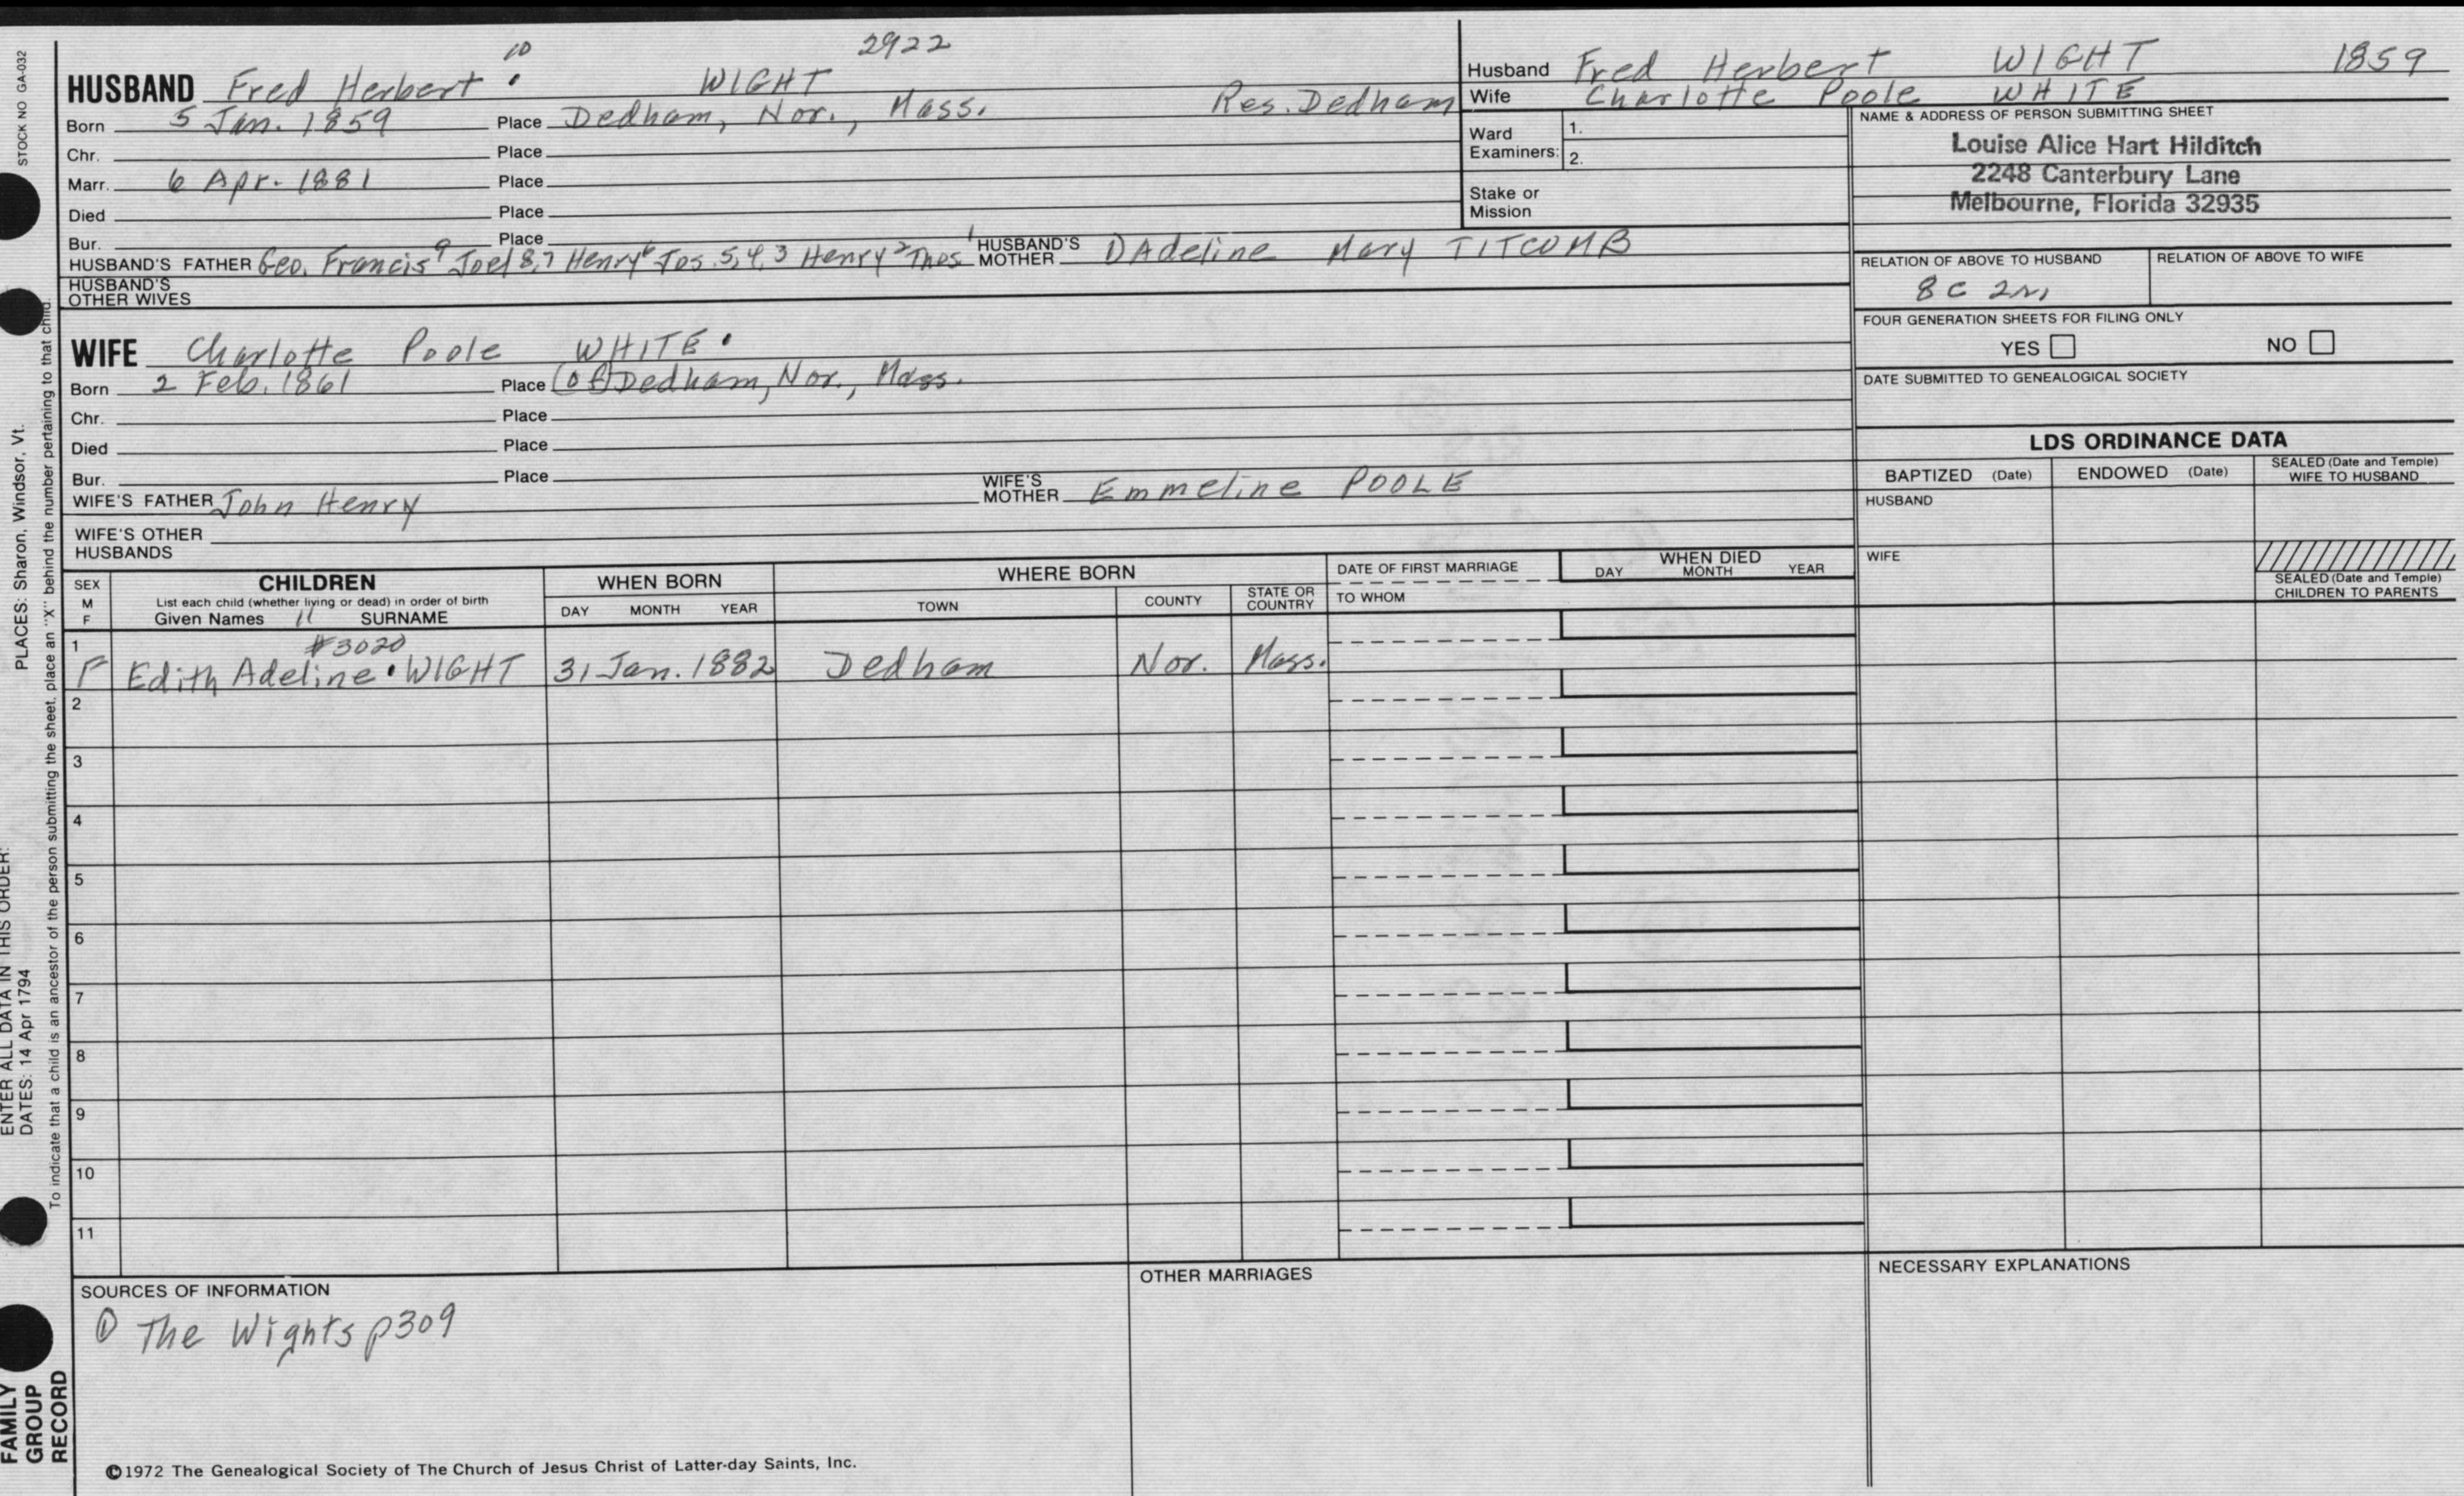 STOCK NO GA-032
PLACES: Sharon, Windsor, Vt.
ENTER ALL DATA IN THIS ORDER:
DATES: 14 Apr 1794
To indicate that a child is an ancestor of the person submitting the sheet, place an "X" behind the number pertaining to that child.
FAMILY
GROUP
RECORD
10 2922
HUSBAND Fred Herbert WIGHT
Born 5 Jan. 1859 Place Dedham, Nor., Mass. Res. Dedham
Chr. Place
Marr. 6 Apr. 1881 Place
Died Place
Bur. Place
HUSBAND'S FATHER Geo. Francis 9 Joel 8,7 Henry 6 Jos. 5,4,3 Henry 2 Thos 1 HUSBAND'S MOTHER DAdeline Mary TITCOMB
HUSBAND'S
OTHER WIVES
WIFE Charlotte Poole WHITE
Born 2 Feb. 1861 Place (of) Dedham, Nor., Mass.
Chr. Place
Died Place
Bur. Place
WIFE'S FATHER John Henry WIFE'S MOTHER Emmeline POOLE
WIFE'S OTHER
HUSBANDS
Husband Fred Herbert WIGHT 1859
Wife Charlotte Poole WHITE
Ward
Examiners:
1.
2.
Stake or
Mission
NAME & ADDRESS OF PERSON SUBMITTING SHEET
Louise Alice Hart Hilditch
2248 Canterbury Lane
Melbourne, Florida 32935
RELATION OF ABOVE TO HUSBAND RELATION OF ABOVE TO WIFE
8 C 2
FOUR GENERATION SHEETS FOR FILING ONLY
YES NO
DATE SUBMITTED TO GENEALOGICAL SOCIETY
LDS ORDINANCE DATA
BAPTIZED (Date) ENDOWED (Date) SEALED (Date and Temple) WIFE TO HUSBAND
HUSBAND
WIFE
SEALED (Date and Temple)
CHILDREN TO PARENTS
SEX
M
F
CHILDREN
List each child (whether living or dead) in order of birth
Given Names 11 SURNAME
WHEN BORN
DAY MONTH YEAR
WHERE BORN
TOWN COUNTY STATE OR COUNTRY
DATE OF FIRST MARRIAGE
TO WHOM
WHEN DIED
DAY MONTH YEAR
1 #3020
F Edith Adeline WIGHT 31 Jan. 1882 Dedham Nor. Mass.
2
3
4
5
6
7
8
9
10
11
SOURCES OF INFORMATION
① The Wights p309
OTHER MARRIAGES
NECESSARY EXPLANATIONS
©1972 The Genealogical Society of The Church of Jesus Christ of Latter-day Saints, Inc.